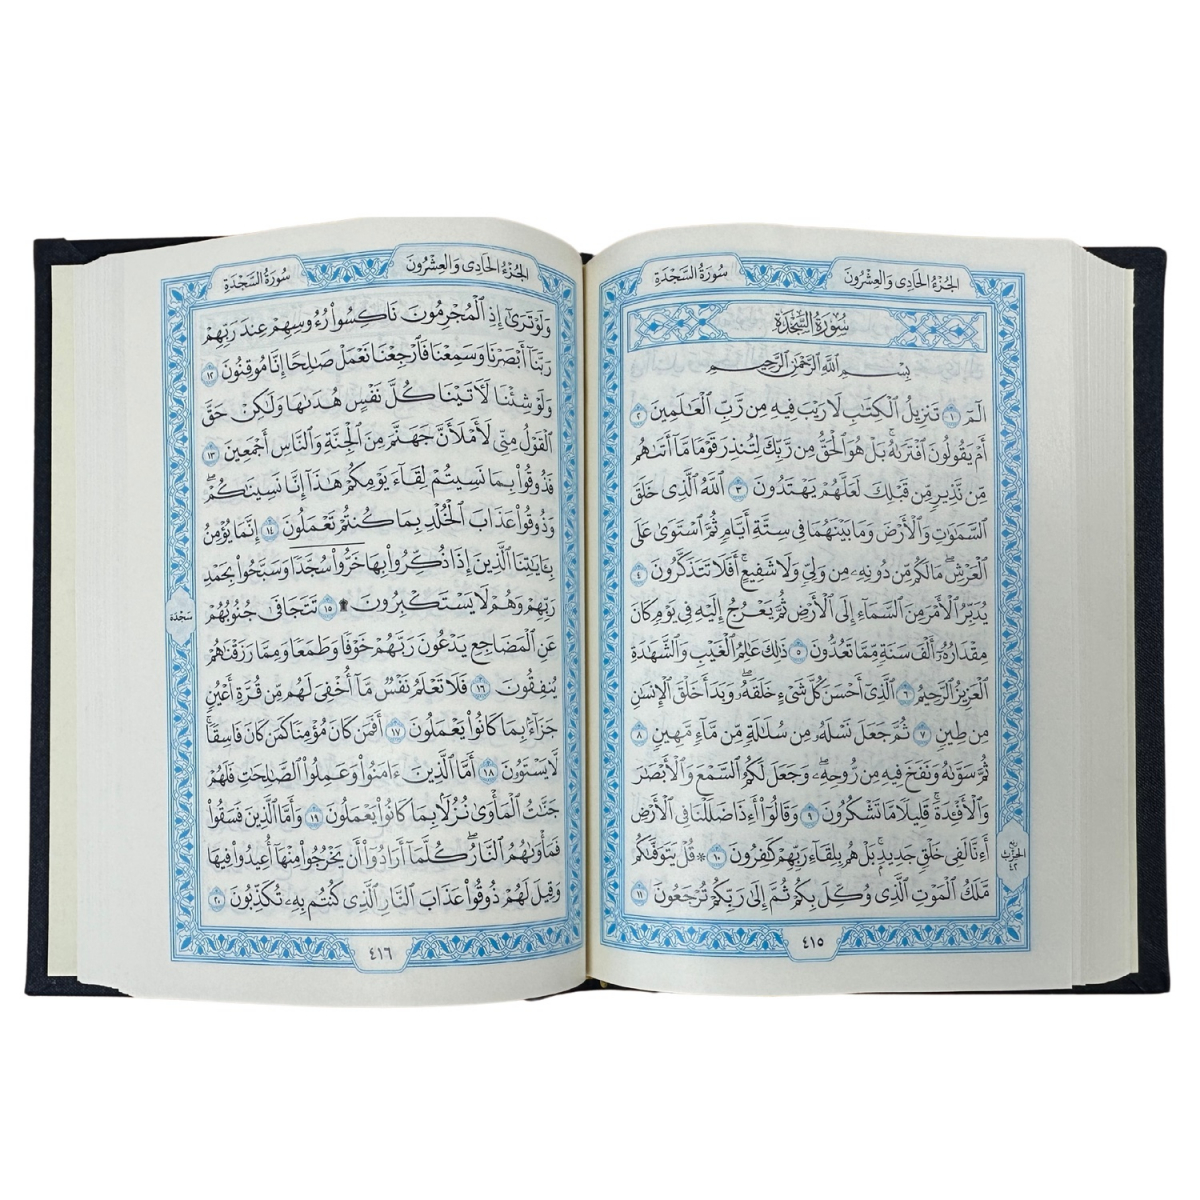 الجُزْءُ الحَادِى وَالعِشْرُونَ
سُورَةُ السَّجْدَةِ
سُورَةُ السَّجْدَةِ
بِسْمِ ٱللَّهِ ٱلرَّحْمَٰنِ ٱلرَّحِيمِ
الٓمٓ ١ تَنزِيلُ ٱلْكِتَٰبِ لَا رَيْبَ فِيهِ مِن رَّبِّ ٱلْعَٰلَمِينَ ٢
أَمْ يَقُولُونَ ٱفْتَرَىٰهُ ۚ بَلْ هُوَ ٱلْحَقُّ مِن رَّبِّكَ لِتُنذِرَ قَوْمًا مَّآ أَتَىٰهُم
مِّن نَّذِيرٍ مِّن قَبْلِكَ لَعَلَّهُمْ يَهْتَدُونَ ٣ ٱللَّهُ ٱلَّذِى خَلَقَ
ٱلسَّمَٰوَٰتِ وَٱلْأَرْضَ وَمَا بَيْنَهُمَا فِى سِتَّةِ أَيَّامٍ ثُمَّ ٱسْتَوَىٰ عَلَى
ٱلْعَرْشِ ۖ مَا لَكُم مِّن دُونِهِۦ مِن وَلِىٍّ وَلَا شَفِيعٍ ۚ أَفَلَا تَتَذَكَّرُونَ ٤
يُدَبِّرُ ٱلْأَمْرَ مِنَ ٱلسَّمَآءِ إِلَى ٱلْأَرْضِ ثُمَّ يَعْرُجُ إِلَيْهِ فِى يَوْمٍ كَانَ
مِقْدَارُهُۥٓ أَلْفَ سَنَةٍ مِّمَّا تَعُدُّونَ ٥ ذَٰلِكَ عَٰلِمُ ٱلْغَيْبِ وَٱلشَّهَٰدَةِ
ٱلْعَزِيزُ ٱلرَّحِيمُ ٦ ٱلَّذِىٓ أَحْسَنَ كُلَّ شَىْءٍ خَلَقَهُۥ ۖ وَبَدَأَ خَلْقَ ٱلْإِنسَٰنِ
مِن طِينٍ ٧ ثُمَّ جَعَلَ نَسْلَهُۥ مِن سُلَٰلَةٍ مِّن مَّآءٍ مَّهِينٍ ٨
ثُمَّ سَوَّىٰهُ وَنَفَخَ فِيهِ مِن رُّوحِهِۦ ۖ وَجَعَلَ لَكُمُ ٱلسَّمْعَ وَٱلْأَبْصَٰرَ
وَٱلْأَفْـِٔدَةَ ۚ قَلِيلًا مَّا تَشْكُرُونَ ٩ وَقَالُوٓا۟ أَءِذَا ضَلَلْنَا فِى ٱلْأَرْضِ
أَءِنَّا لَفِى خَلْقٍ جَدِيدٍۭ ۚ بَلْ هُم بِلِقَآءِ رَبِّهِمْ كَٰفِرُونَ ١٠ * قُلْ يَتَوَفَّىٰكُم
مَّلَكُ ٱلْمَوْتِ ٱلَّذِى وُكِّلَ بِكُمْ ثُمَّ إِلَىٰ رَبِّكُمْ تُرْجَعُونَ ١١
ربع
الحزب
٤٢
٤١٥
الجُزْءُ الحَادِى وَالعِشْرُونَ
سُورَةُ السَّجْدَةِ
وَلَوْ تَرَىٰٓ إِذِ ٱلْمُجْرِمُونَ نَاكِسُوا۟ رُءُوسِهِمْ عِندَ رَبِّهِمْ
رَبَّنَآ أَبْصَرْنَا وَسَمِعْنَا فَٱرْجِعْنَا نَعْمَلْ صَٰلِحًا إِنَّا مُوقِنُونَ ١٢
وَلَوْ شِئْنَا لَءَاتَيْنَا كُلَّ نَفْسٍ هُدَىٰهَا وَلَٰكِنْ حَقَّ
ٱلْقَوْلُ مِنِّى لَأَمْلَأَنَّ جَهَنَّمَ مِنَ ٱلْجِنَّةِ وَٱلنَّاسِ أَجْمَعِينَ ١٣
فَذُوقُوا۟ بِمَا نَسِيتُمْ لِقَآءَ يَوْمِكُمْ هَٰذَآ إِنَّا نَسِينَٰكُمْ ۖ
وَذُوقُوا۟ عَذَابَ ٱلْخُلْدِ بِمَا كُنتُمْ تَعْمَلُونَ ١٤ إِنَّمَا يُؤْمِنُ
بِـَٔايَٰتِنَا ٱلَّذِينَ إِذَا ذُكِّرُوا۟ بِهَا خَرُّوا۟ سُجَّدًا وَسَبَّحُوا۟ بِحَمْدِ
رَبِّهِمْ وَهُمْ لَا يَسْتَكْبِرُونَ ۩ ١٥ تَتَجَافَىٰ جُنُوبُهُمْ
عَنِ ٱلْمَضَاجِعِ يَدْعُونَ رَبَّهُمْ خَوْفًا وَطَمَعًا وَمِمَّا رَزَقْنَٰهُمْ
يُنفِقُونَ ١٦ فَلَا تَعْلَمُ نَفْسٌ مَّآ أُخْفِىَ لَهُم مِّن قُرَّةِ أَعْيُنٍ
جَزَآءًۢ بِمَا كَانُوا۟ يَعْمَلُونَ ١٧ أَفَمَن كَانَ مُؤْمِنًا كَمَن كَانَ فَاسِقًا ۚ
لَّا يَسْتَوُۥنَ ١٨ أَمَّا ٱلَّذِينَ ءَامَنُوا۟ وَعَمِلُوا۟ ٱلصَّٰلِحَٰتِ فَلَهُمْ
جَنَّٰتُ ٱلْمَأْوَىٰ نُزُلًۢا بِمَا كَانُوا۟ يَعْمَلُونَ ١٩ وَأَمَّا ٱلَّذِينَ فَسَقُوا۟
فَمَأْوَىٰهُمُ ٱلنَّارُ ۖ كُلَّمَآ أَرَادُوٓا۟ أَن يَخْرُجُوا۟ مِنْهَآ أُعِيدُوا۟ فِيهَا
وَقِيلَ لَهُمْ ذُوقُوا۟ عَذَابَ ٱلنَّارِ ٱلَّذِى كُنتُم بِهِۦ تُكَذِّبُونَ ٢٠
سَجْدَة
٤١٦